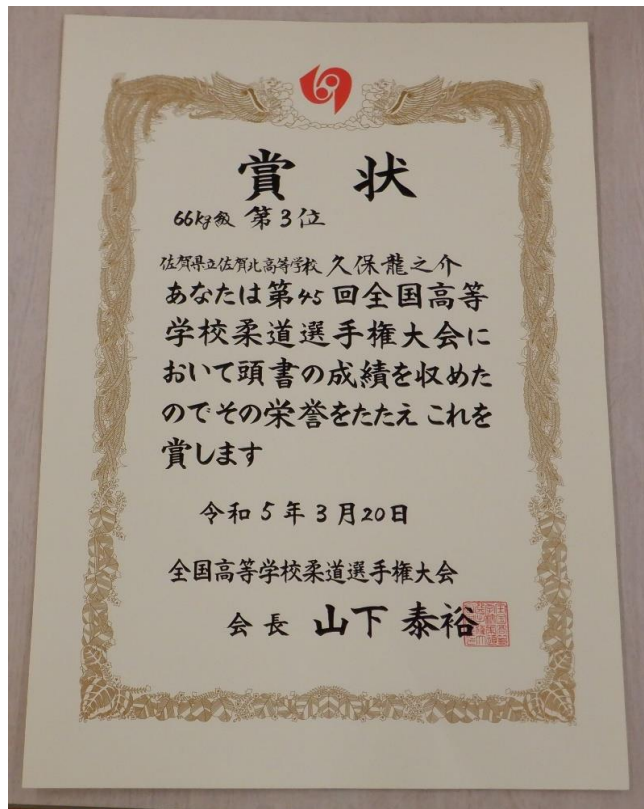 賞状
66kg級 第3位
佐賀県立佐賀北高等学校 久保龍之介
あなたは第45回全国高等
学校柔道選手権大会に
おいて頭書の成績を収めた
のでその栄誉をたたえ これを
賞します
令和5年3月20日
全国高等学校柔道選手権大会
会長 山下泰裕